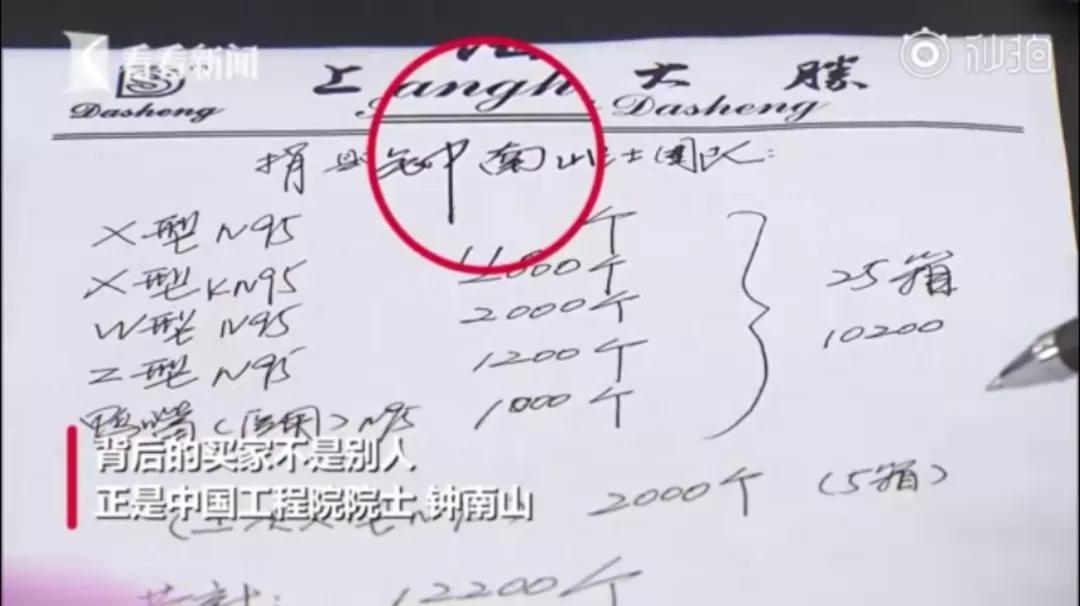 看看新闻
秒拍
上 大勝
Dasheng angh Dasheng
捐 钟南山 士团队:
X型 N95 个
X型 KN95 个
W型 N95 2000个
Z型 N95 1200个
鸭嘴(医用)N95 1000个
25箱
10200
背后的买家不是别人
正是中国工程院院士 钟南山
2000个 (5箱)
共计: 12200个